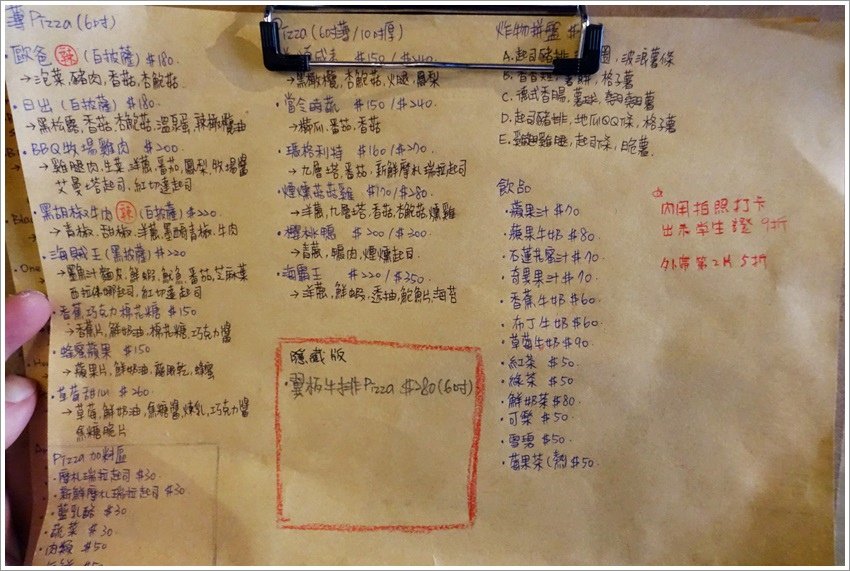 薄Pizza(6吋)
・歐爸 辣 (白披薩) $180
→泡菜,豬肉,香菇,杏鮑菇
・日出 (白披薩) $180
→黑松露,香菇,杏鮑菇,溫泉蛋,辣橄欖油
・BBQ牧場雞肉 $200
→雞腿肉,生菜,洋蔥,番茄,鳳梨,牧場醬
艾曼塔起司,紅切達起司
・黑胡椒牛肉 辣 (白披薩) $220
→青椒,甜椒,洋蔥,墨西哥青椒,牛肉
・海賊王(黑披薩) $220
麵皮,鮮蝦,魷魚,番茄,芝麻葉
起司,紅切達起司
・香蕉巧克力棉花糖 $150
→香蕉片,鮮奶油,棉花糖,巧克力醬
・蜂蜜蘋果 $150
→蘋果片,鮮奶油,葡萄乾,蜂蜜
・草莓甜心 $260
→草莓,鮮奶油,焦糖醬,煉乳,巧克力醬
焦糖脆片
Pizza加料區
・摩札瑞拉起司 $30
・新鮮摩札瑞拉起司 $30
・藍乳酪 $30
・蔬菜 $30
・肉類 $50
Pizza(6吋薄/10吋厚)
$150/$240
→黑橄欖,杏鮑菇,火腿,鳳梨
・當令時蔬 $150/$240
→櫛瓜,番茄,香菇
・瑪格利特 $160/$270
→九層塔,番茄,新鮮摩札瑞拉起司
・煙燻菇菇雞 $170/$280
→洋蔥,九層塔,香菇,杏鮑菇,燻雞
・櫻桃鴨 $200/$300
→青蔥,鴨肉,煙燻起司
・海霸王 $220/$350
→洋蔥,鮮蝦,透抽,鮑魚片,海苔
隱藏版
・翼板牛排Pizza $280(6吋)
炸物拼盤
A.起司豬排 圈,波浪薯條
B. 薯餅,格子薯
C.德式香腸,薯球,薯
D.起司豬排,地瓜QQ條,格子薯
E. 雞腿,起司條,脆薯
飲品
・蘋果汁 $70
・蘋果牛奶 $80
・石蓮花蜜汁 $70
・奇異果汁 $70
・香蕉牛奶 $60
・布丁牛奶 $60
・草莓牛奶 $90
・紅茶 $50
・綠茶 $50
・鮮奶茶 $80
・可樂 $50
・雪碧 $50
・蘋果茶(熱) $50
內用拍照打卡
出示學生證 9折
外帶第2片5折